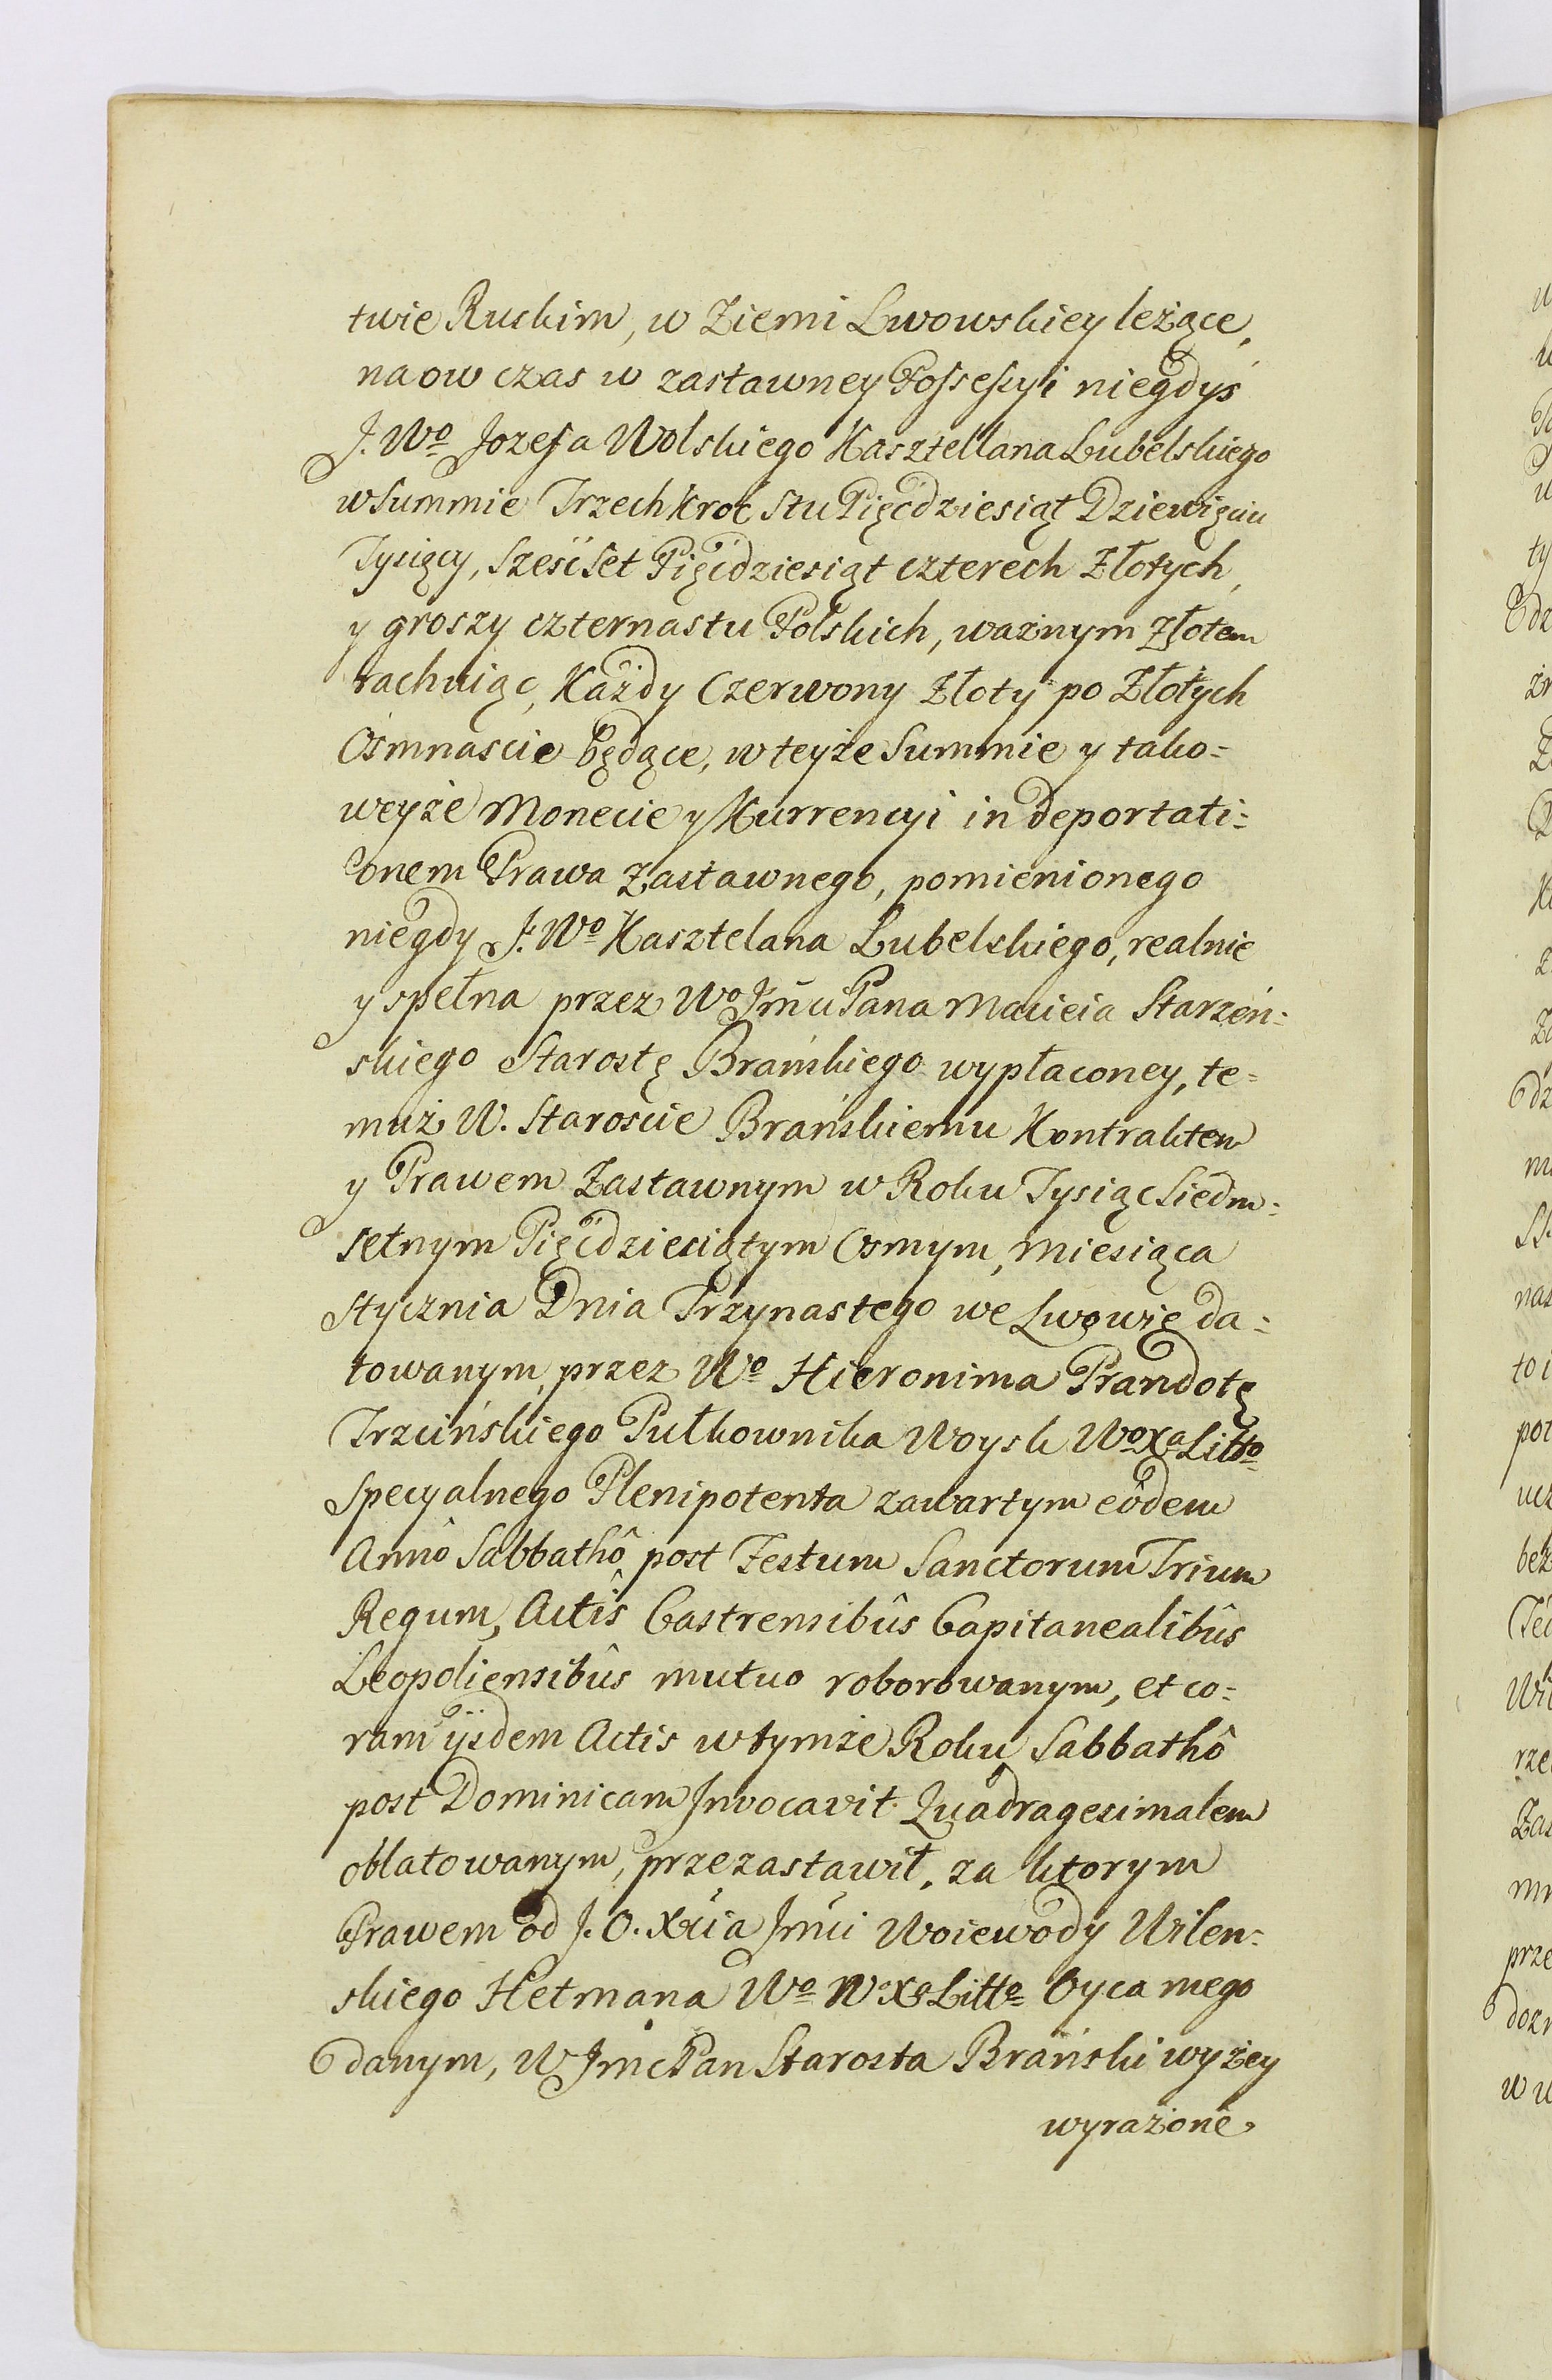 twie Ruskim, w Ziemi Lwowskiey leżące,
na ow czas w zastawney Possessyi niegdyś
J. Wo Jozefa Wolskiego Kasztellana Lubelskiego
w Summie Trzech kroć Stu Pięćdziesiąt Dziewięciu
Tysięcy, Sześć Set Pięćdziesiąt czterech Złotych,
y groszy czternastu Polskich, ważnym Złotem
rachuiąc, Każdy Czerwony Złoty po Złotych
Ośmnaście będące, w teyże Summie y tako=
weyże Monecie y Kurrencyi in deportati=
onem Prawa Zastawnego, pomienionego
niegdy J. Wo Kasztelana Lubelskiego, realnie
y spełna przez Wo Jmći Pana Macieia Starzeń=
skiego Starostę Brańskiego wypłaconey, te=
muż W. Staroście Brańskiemu Kontraktem
y Prawem Zastawnym w Roku Tysiąc Siedm=
setnym Pięćdziesiątym Osmym, Miesiąca
Stycznia Dnia Trzynastego we Lwowie da=
towanym, przez Wo Hieronima Prandotę
Trzcińskiego Pułkownika Woysk Wo Xa Litto
Specyalnego Plenipotenta zawartym eôdem
Annô Sabbathô post Festum Sanctorum Trium
Regum, Actîs Castrensibûs Capitanealibûs
Leopoliensibûs mutuo roborowanym, et co=
ram ijsdem Actis w tymże Roku Sabbathô
post Dominicam Invocavit Quadragesimalem
oblatowanym, przezastawił, za ktorym
Prawem od J. O. Xcia Jmći Woiewody Wilen=
skiego Hetmana Wo W. Xa Litto Oyca mego
danym, W Jmc Pan Starosta Brański wyżey
wyrażone